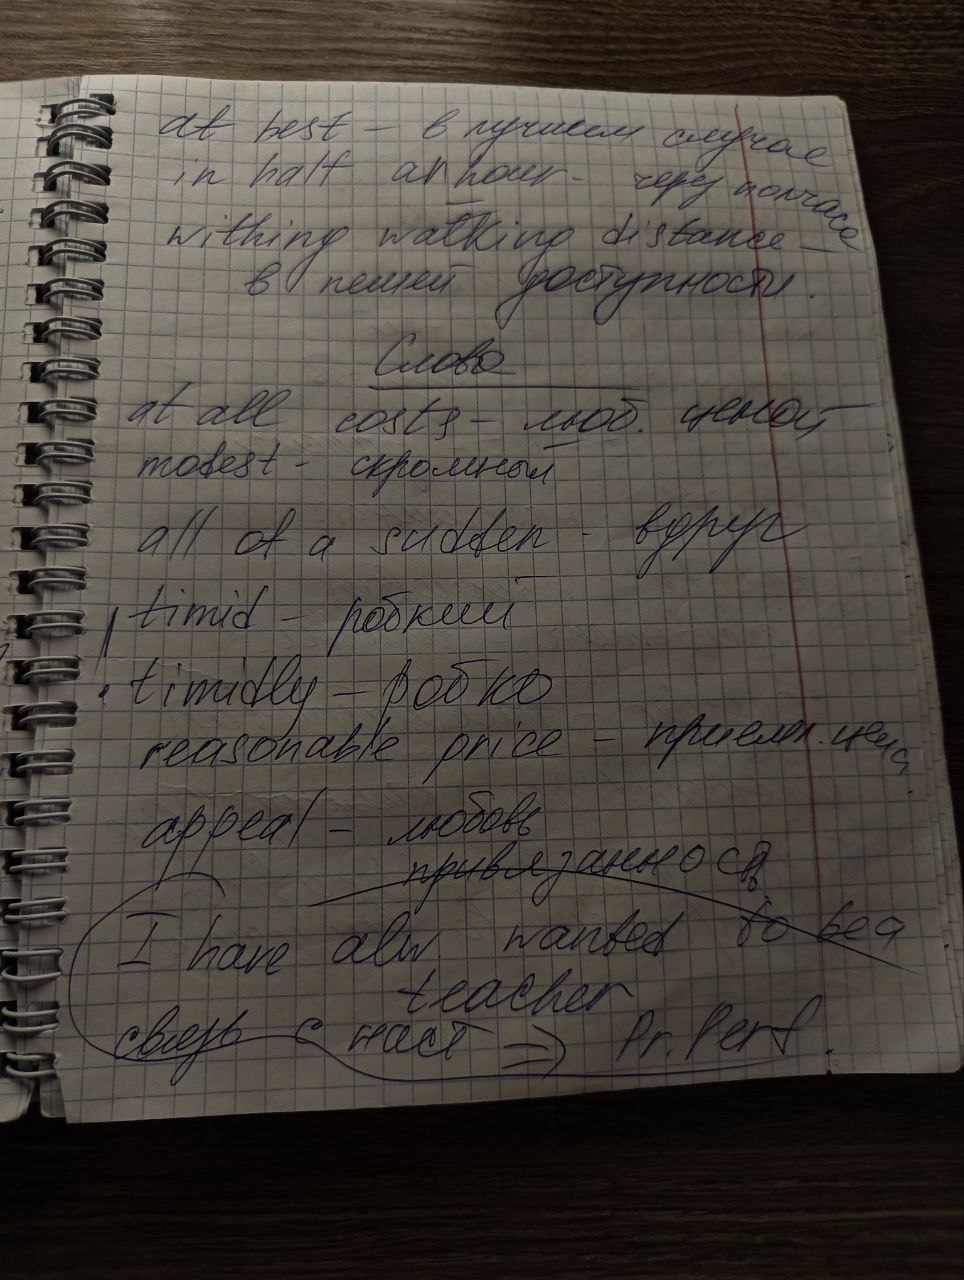 at best - в лучшем случае
in half an hour - через полчаса
withing walking distance -
в пешей доступности.
Слова
at all costs - люб. ценой
modest - скромный
all of a sudden - вдруг
timid - робкий
timidly - робко
reasonable price - приемл. цена
appeal - любовь
привязанность
I have alw. wanted to be a
teacher
связь с наст => Pr. Perf.